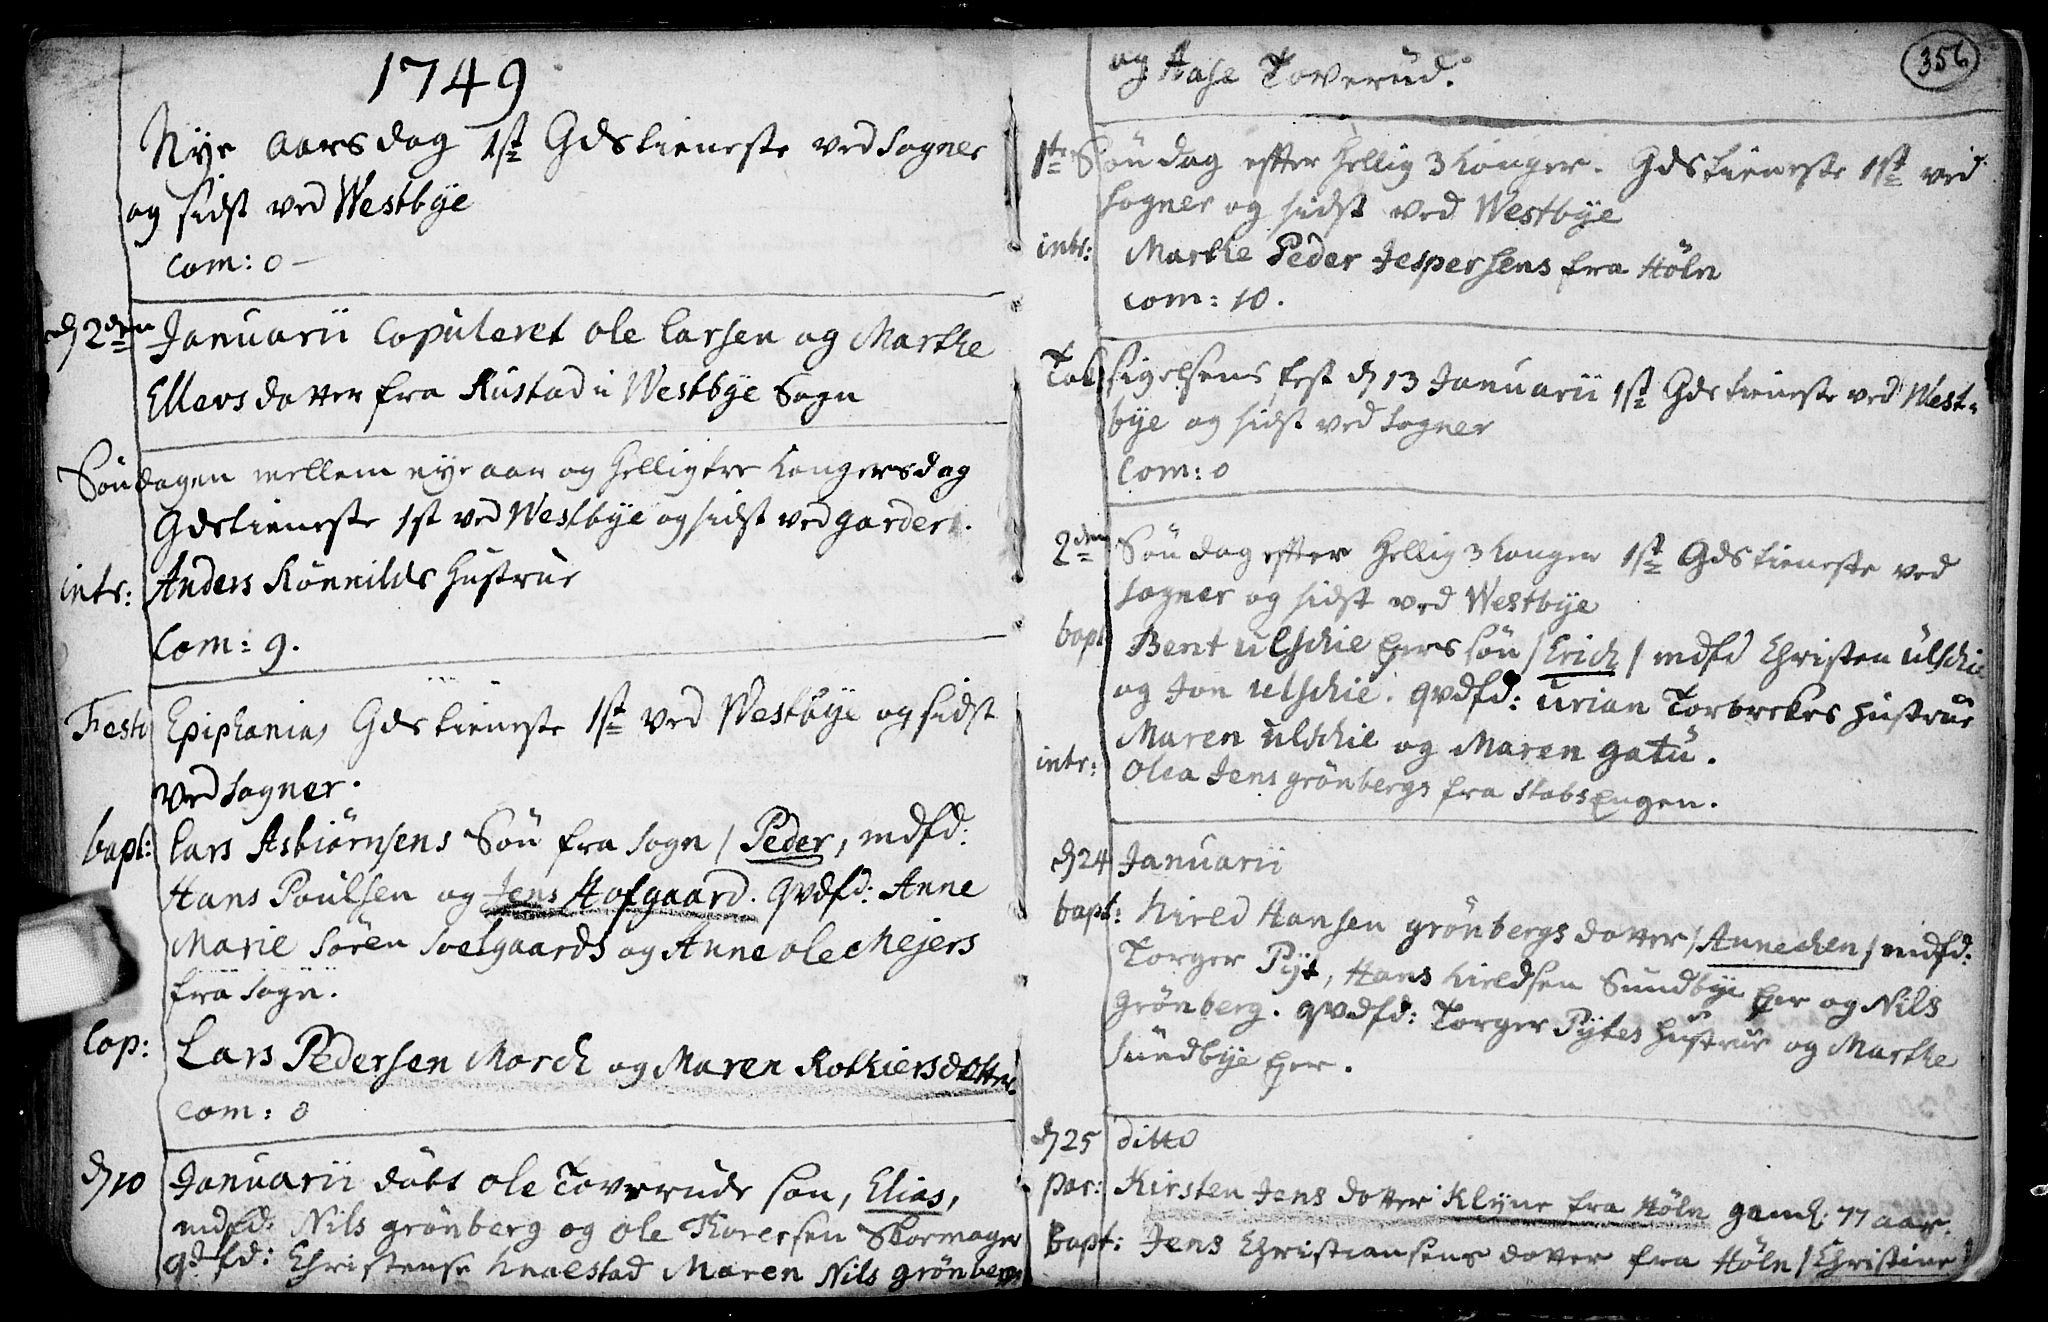 1749
Nye aars dag 1ste Gdstieneste ved Sogner
og sidst ved Westbye
com: 0 -
d 2den Januarii Copuleret Ole Larsen og Marthe
Ellevsdotter fra Rustad i Westbye Sogn
Søndagen mellem nye aar og Helligtre Kongersdag
Gdstieneste 1st ved Westbye og sidst ved garder.
intr: Anders Rønnilds Hustrue
Com: 9.
Festo Epiphanias Gdstieneste 1ste ved Westbye og sidst
ved Sogner.
bapt: Lars Asbiørnsens Søn fra Sogn / Peder, mdfd:
Hans Poulsen og Jens Hofgaard. qvdfd: Anne
Marie Søren Soelgaards og Anne Ole Mejers
fra Sogn.
Cop: Lars Pedersen Morch og Maren Rothiersdotter
com: 0
d 10 Januarii døbt Ole Toveruds søn, Elias,
mdfd: Nils grønberg og Ole Thoresen Skormager
qdfd: Christense Knalstad Maren Nils grønbergs
356
og Aase Toverud.
1te Søndag efter Hellig 3 Konger. Gdstieneste 1ste ved
Sogner og sidst ved Westbye
intr: Marthe Peder Jespersens fra Høln
com: 10.
Taksigelsens fest d 13 Januarii 1ste Gdstieneste ved West-
bye og sidst ved Sogner
Com: 0
2den Søndag efter Hellig 3 Konger 1ste Gdstieneste ved
Sogner og sidst ved Westbye
bapt Bent Ulschie Eiers søn / Erich / mdfd Christen Ulschie
og Jon Ulschie. qvdfd: Urian Torbrekes Hustrue
Maren Ulschie og Maren gatu.
intr: Olea Jens grønbergs fra Stabs Engen.
d 24 Januarii
bapt: Kield Hansen grønbergs dotter / Annechen / mdfd:
Torger Pyt, Hans Kieldsen Sundbye Eier og Nils
Grønberg. qvdfd: Torger Pytes Hustrue og Marthe
Sundbye Eier.
d 25 ditto
par: Kirsten Jens dotter Klyne fra Høln gaml: 77 aar.
bapt: Jens Christiansens dotter fra Høln / Christine